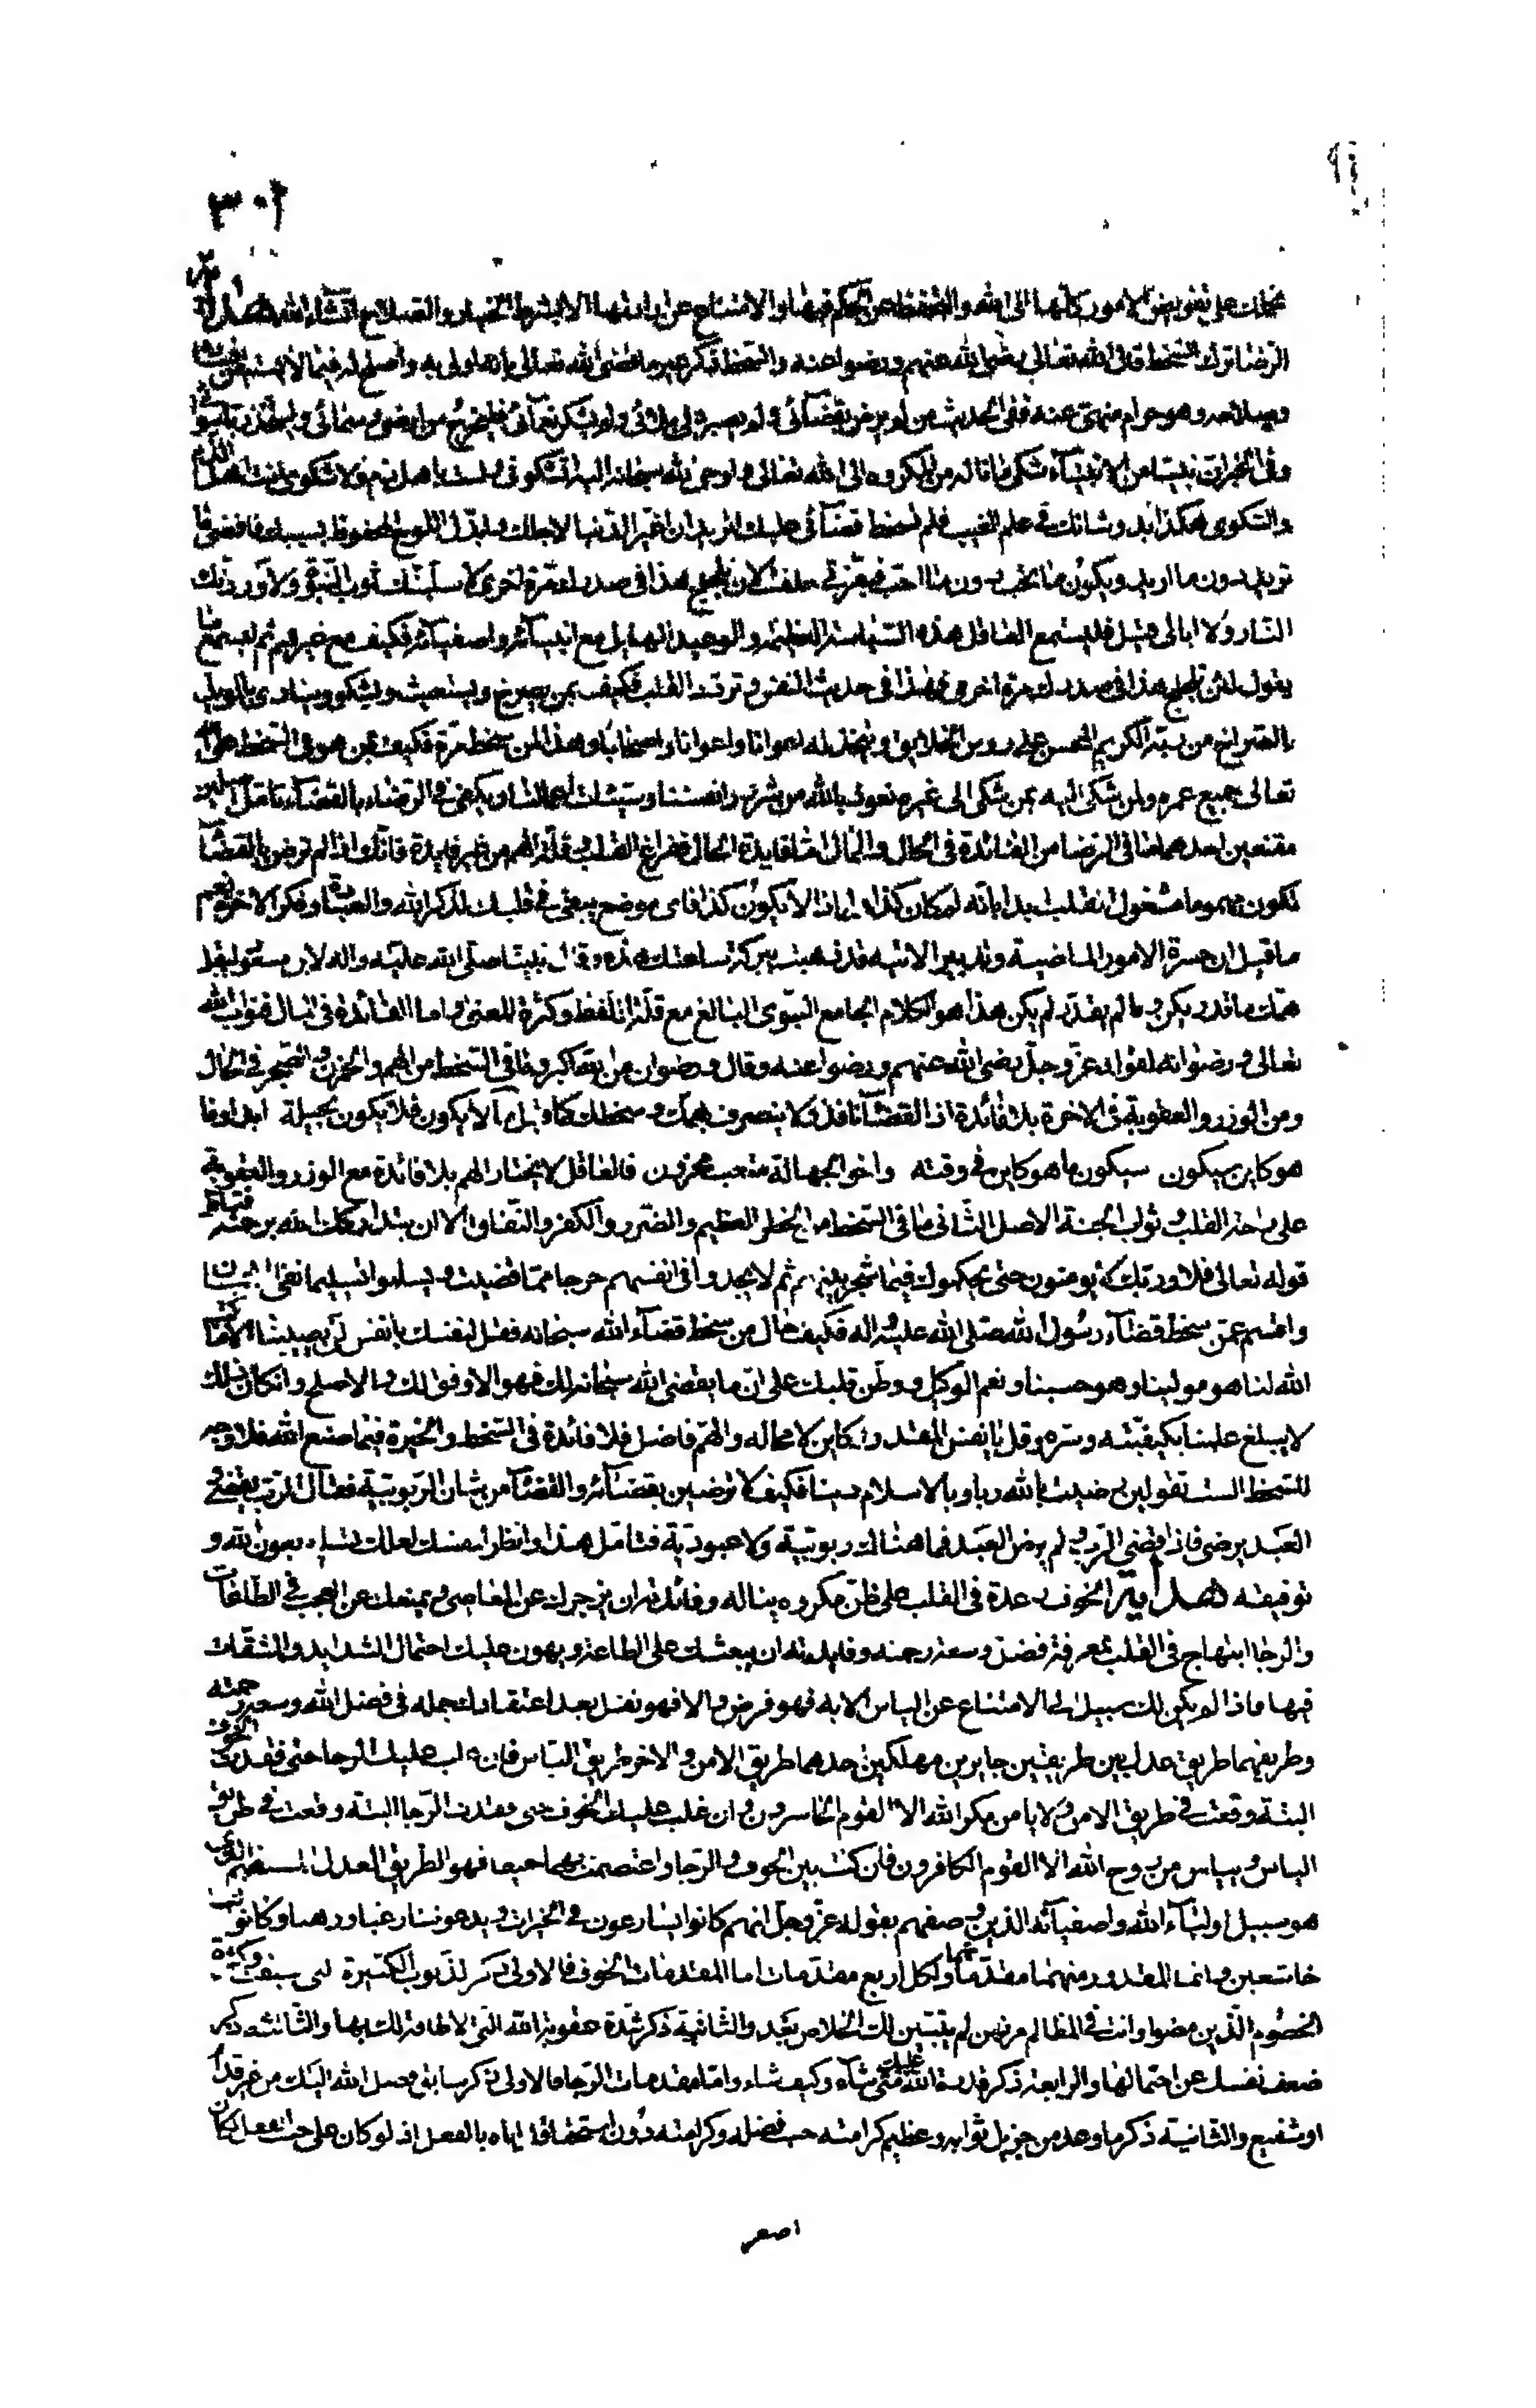 ٣٠٢
على تفويض الامور كلها الى الله والتحفظ عن الحكم فيها والامتناع عن ارادتها الا بشرط الخيار والصلاح انشاء الله
الرضا ترك السخط قال الله تعالى رضي الله عنهم ورضوا عنه والسخط ذكر غير ما قضى الله تعالى بانه اولى به واصلح له فيما لا يستيقن
وهو حرام منهى عنه ففى الحديث من لم يرض بقضائى ولم يصبر على بلائى ولم يشكر نعمائى فليخرج من ارضى وسمائى
وفى الخبر ان نبيا من الانبياء شكى ما ناله من المكروه الى الله تعالى فاوحى الله سبحانه اليه اتشكونى ولست باهل ذم ولا شكوى انت اهل الذم
والشكوى هكذا بدو شانك فى علم الغيب فلم تسخط قضائى عليك اتريد ان اغير الدنيا لاجلك وابدل اللوح المحفوظ بسببك فاقضى ما
تريد دون ما اريد ويكون ما تحب دون ما احب فبعزتى حلفت لان تلجلج هذا فى صدرك مرة اخرى لاسلبنك ثوب النبوة ولاوردنك
النار ولا ابالى فليستمع العاقل هذه السياسة العظيمة والوعيد الهايل مع انبيائه واصفيائه فكيف مع غيرهم ثم استمع ما
يقول لئن تلجلج هذا فى صدرك مرة اخرى فهذا فى حديث النفس وتردد القلب فكيف بمن يصرخ ويستغيث ويشكو وينادى بالويل
والصراخ من ربه الكريم المحسن على رؤس الخلائق ويتخذ له اعوانا واصحابا وهذا لمن سخط مرة فكيف بمن هو فى السخط على الله
تعالى جميع عمره ولمن شكى اليه فكيف بمن شكى الى غيره نعوذ بالله من شرور انفسنا وسيئات اعمالنا ويكفى فى الرضاء بالقضاء تامل اصلين
مقنعين احدهما ما فى الرضا من الفائدة فى الحال والمال اما فايدة الحال ففراغ القلب وقلة الهم من غير فايدة فانك اذا لم ترض بالقضاء
تكون مهموما مشغول القلب ابدا بانه لم كان كذا ولماذا لا يكون كذا فاى موضع يبقى فى قلبك لذكر الله والعبادة وفكر الاخرة ونعم
ما قيل ان حسرة الامور الماضية وتدبير الاتية قد ذهبت ببركة ساعتك هذه وقال نبينا صلى الله عليه واله لابن مسعود ليقل
همك ما قدر يكن وما لم يقدر لم يكن هذا هو الكلام الجامع النبوى البالغ مع قلة اللفظ وكثرة المعنى واما الفائدة فى المال فثواب الله
تعالى ورضوانه لقوله عز وجل رضى الله عنهم ورضوا عنه وقال ورضوان من الله اكبر وما فى السخط من الهم والحزن والضجر فى الحال
ومن الوزر والعقوبة فى الاخرة بلا فائدة اذ القضاء نافذ ولا ينصرف بهمك وسخطك كما قيل ما لا يكون فلا يكون بحيلة ابدا وما
هو كاين سيكون سيكون ما هو كاين فى وقته واخو الجهالة متعب محزون فالعاقل لا يختار الهم بلا فائدة مع الوزر والعقوبة
على راحة القلب وثواب الجنة الاصل الثانى ما فى السخط من الخطر العظيم والضرر والكفر والنفاق الا ان يتداركك الله برحمته فتامل
قوله تعالى فلا وربك لا يؤمنون حتى يحكموك فيما شجر بينهم ثم لا يجدوا فى انفسهم حرجا مما قضيت ويسلموا تسليما نفى الايمان
واقسم عمن سخط قضاء رسول الله صلى الله عليه واله فكيف حال من سخط قضاء الله سبحانه فقل لنفسك يا نفس لن يصيبنا الا ما كتب
الله لنا هو مولينا وهو حسبنا ونعم الوكيل ووطن قلبك على ان ما يقضى الله سبحانه لك فهو الاوفق لك والاصلح وان كان ذلك
لا يبلغ علمنا بكيفيته وسره وقل يا نفس المقدر كاين لا محاله والهم فاضل فلا فائدة فى السخط والخيرة فيما صنع الله فلا وجه
للسخط الست تقولين رضيت بالله ربا وبالاسلام دينا فكيف لا ترضين بقضائه والقضاء من شان الربوبية فقال الرب يقضى
العبد يرضى فاذا قضى الرب ولم يرض العبد فما هناك ربوبية ولا عبودية فتامل هذا وانظر لنفسك لعلك تسلم بعون الله و
توفيقه هداية الخوف رعدة فى القلب على ظن مكروه يناله وفائدته ان يزجرك عن المعاصى ويمنعك عن العجب فى الطاعات
والرجا ابتهاج فى القلب لمعرفة فضل وسعة رحمته وفايدته ان يبعثك على الطاعة ويهون عليك احتمال الشدايد والمشقات
فيها فاذا لم يكن لك سبيل الى الامتناع عن الياس الا به فهو فرض والا فهو نفل بعد اعتقادك جمله فى فضل الله وسعة رحمته
وطريقهما طريق عدل بين طريقين جايرين مهلكين احدهما طريق الامن والاخر طريق الياس فان غلب عليك الرجا حتى فقدت الخوف
البتة وقعت فى طريق الامن ولا يامن مكر الله الا القوم الخاسرون وان غلب عليك الخوف حتى فقدت الرجا البتة وقعت فى طريق
الياس ولا ييأس من روح الله الا القوم الكافرون فان كنت بين الخوف والرجا واعتصمت بهما جميعا فهو الطريق العدل المستقيم الذى
هو سبيل اولياء الله واصفيائه الذين وصفهم بقوله عز وجل انهم كانوا يسارعون فى الخيرات ويدعوننا رغبا ورهبا وكانوا لنا
خاشعين وانما المقدور منهما مقدماتهما ولكل اربع مقدمات اما المقدمات الخوف فالاولى ذكر الذنوب الكثيرة التى سبقت وكثرة
الخصوم الذين مضوا وانت فى المظالم مرتهن لم يتبين لك الخلاص بعد والثانية ذكر شدة عقوبة الله التى لا طاقة لك بها والثالثه ذكر
ضعف نفسك عن احتمالها والرابعة ذكر قدرة الله عليك متى شاء وكيف شاء واما مقدمات الرجا فالاولى ذكر سابق فضل الله اليك من غير قدم
او شفيع والثانية ذكر ما وعد من جزيل ثوابه وعظيم كرامته حسب فضله وكرامته دون استحقاقك اياه بالفعل اذ لو كان على حسب الفعل لكان
اصغر